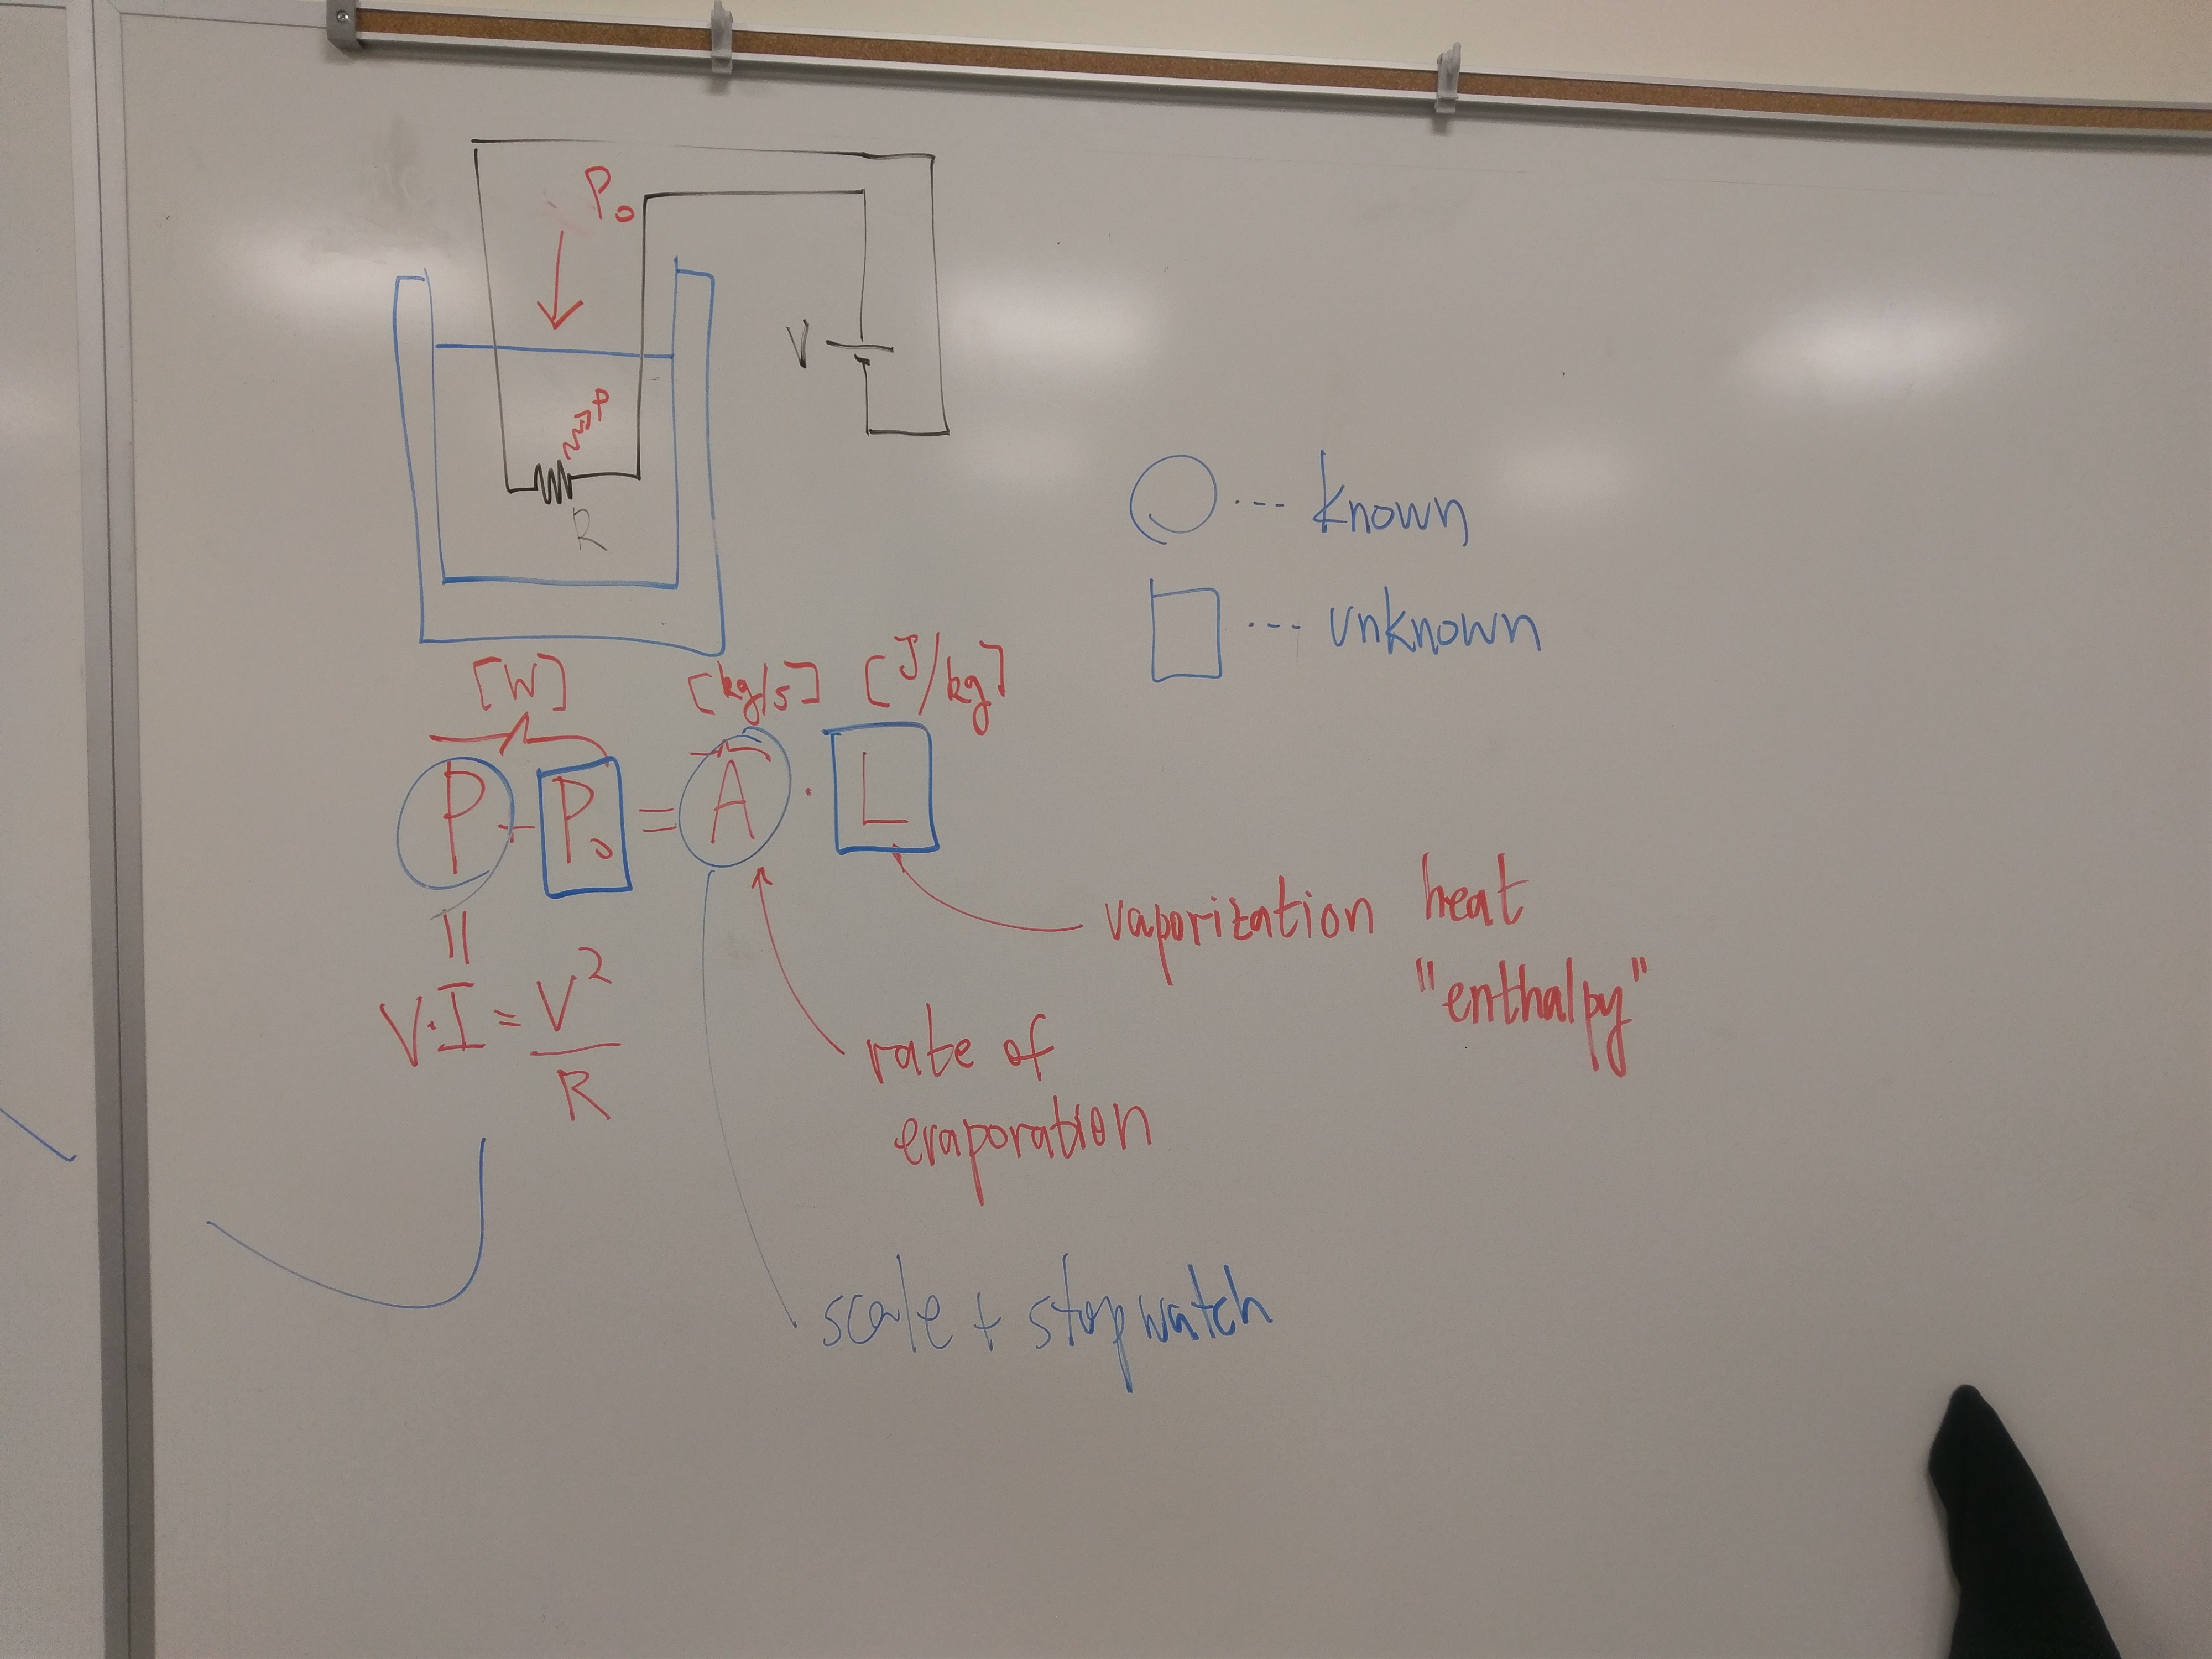 P₀
V
P
R
○ --- known
□ --- unknown
[W] [kg/s] [J/kg]
P + P₀ = A · L
vaporization heat
"enthalpy"
||
V·I = V²/R
rate of
evaporation
scale + stopwatch